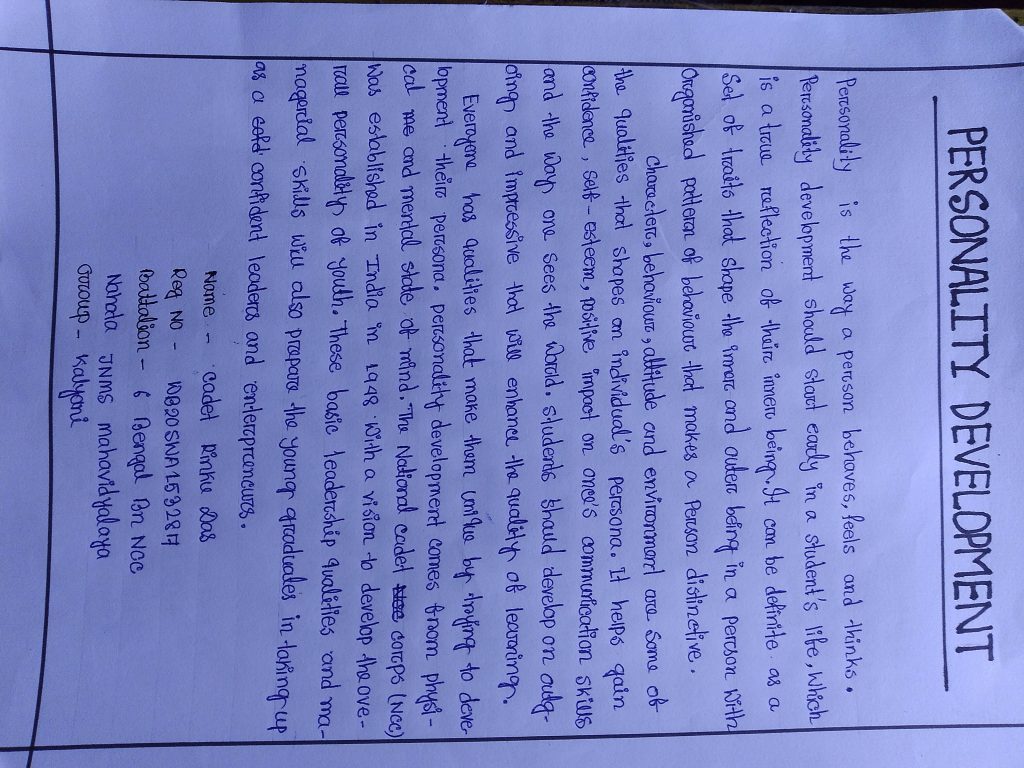 PERSONALITY DEVELOPMENT
Personality is the way a person behaves, feels and thinks.
Personality development should start early in a student's life, which
is a true reflection of their inner being. It can be definite as a
Set of traits that shape the inner and outer being in a person with
Organished pattern of behaviour that makes a person distinctive.
character, behaviour, attitude and environment are some of
the qualities that shapes an individual's persona. It helps gain
confidence, self-esteem, positive impact on one's communication skills
and the way one sees the world. students should develop an outg-
oing and impressive that will enhance the quality of learning.
Everyone has qualities that make them unique by trying to deve-
lopment their persona. personality development comes from physi-
cal me and mental state of mind. The National cadet corps (Ncc)
was established in India in 1948 with a vision to develop the ove-
rall personality of youth. These basic leadership qualities and ma-
nagerial skills will also prepare the young graduates in taking up
as a confident leaders and enterpreneurs.
Name - Cadet Rinku Das
Reg No - WB20SWA153287
Battalion - 6 Bengal Bn Ncc
JNMS mahavidyalaya
Group - Kalyani